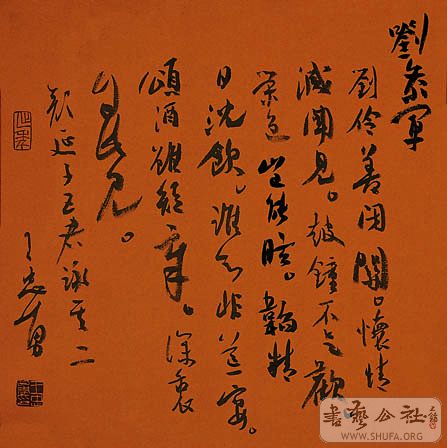 劉參軍
劉伶善閉關。懷情
滅聞見。鼓鐘不足歡
榮色豈能眩。韜精
日沈飲。誰知非荒宴。
頌酒雖短章。深衷
自此見。
顏延之五君詠其二
書藝公社
WWW.SHUFA.ORG